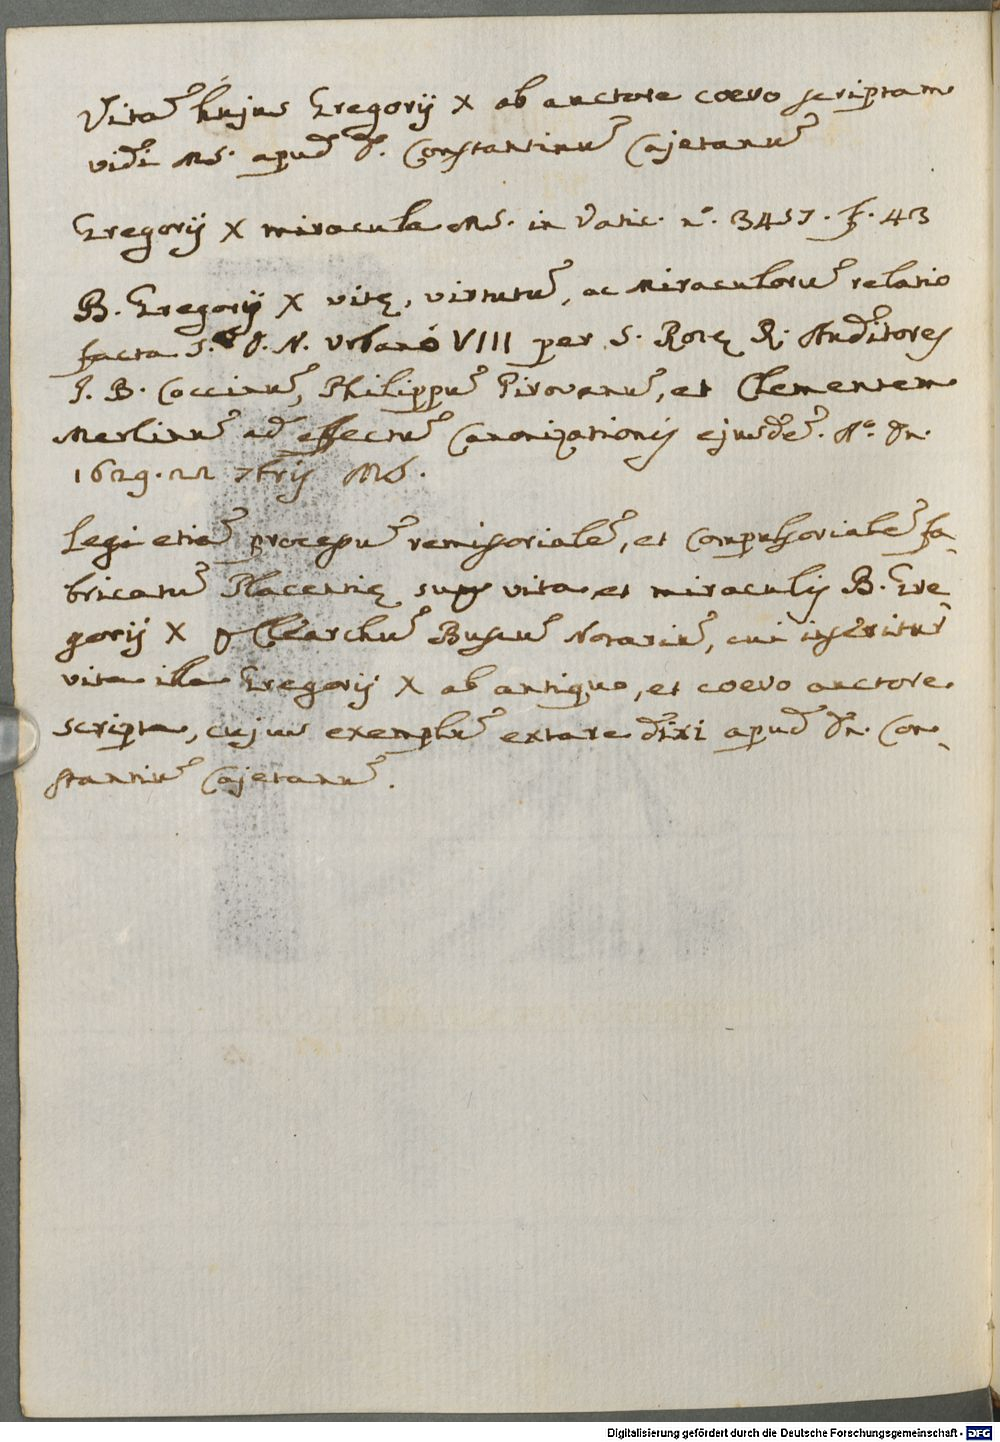 Vitã hujus Gregorij X ab auctore coevo scriptam
vidi MS. apud D. Constantinũ Cajetanũ
Gregorij X miracula MS. in Vatic. n.º 3457. f. 43
B. Gregorij X vitę, virtutũ, ac Miraculorũ relatio
facta S. D. N. Urbano VIII per S. Rotę R. Auditores
J. B. Coccinũ, Philippũ Pirovanũ, et Clementem
Merlinũ ad effectũ Canonizationis ejusdẽ. Aº. Dn.
1629. 22 7brij MS.
Legi etiã processũ remissorialẽ, et Compulsorialẽ fa-
bricatũ Placentię sup vita, et miraculis B. Gre
gorij X ꝑ Clearchũ Bussũ Notariũ, cui inseritur
vita illa Gregorij X ab antiquo, et coevo auctore
scripta, cujus exemplũ extare dixi apud Dn. Con-
stantiũ Cajetanũ.
Digitalisierung gefördert durch die Deutsche Forschungsgemeinschaft - DFG